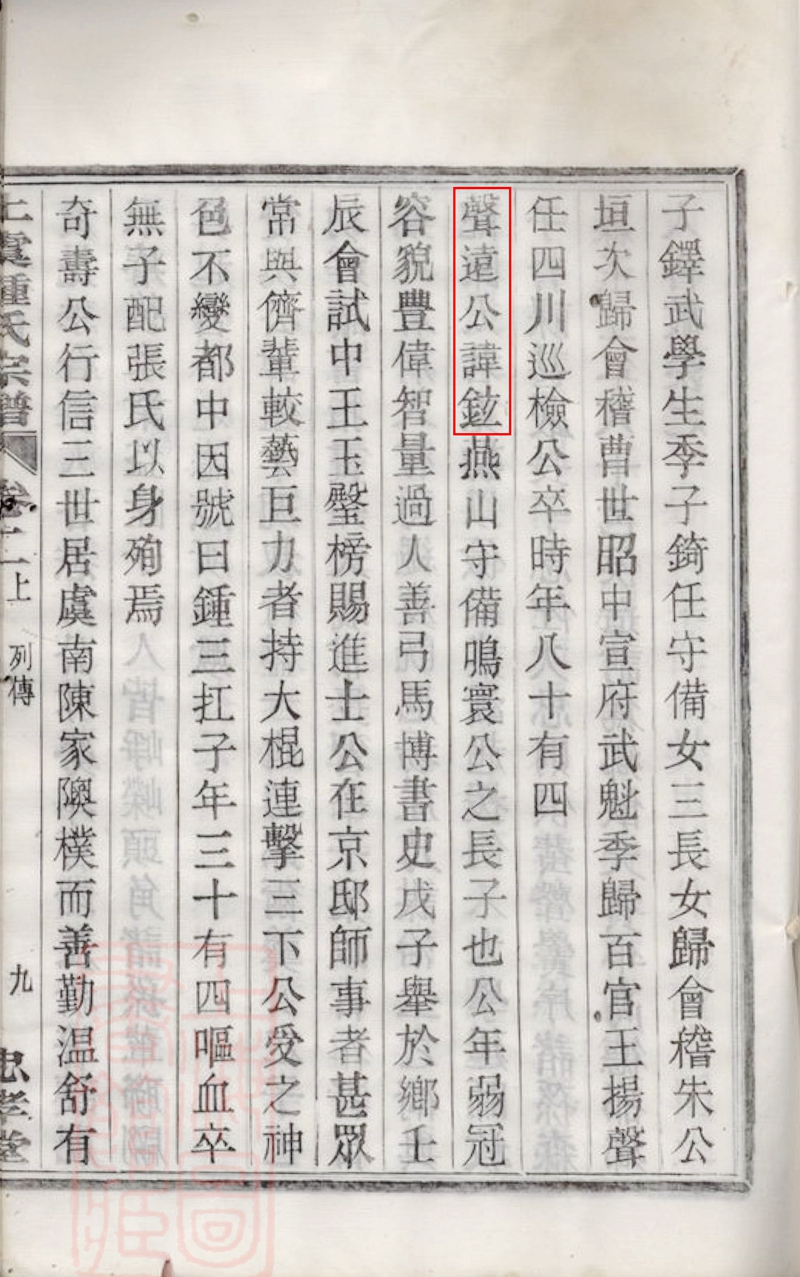 子鐸武學生季子錡任守備女三長女歸會稽朱公
垣次歸會稽曹世昭中宣府武魁季歸百官王揚聲
任四川巡檢公卒時年八十有四
聲遠公諱鉉燕山守備鳴寰公之長子也公年弱冠
容貌豐偉智量過人善弓馬博書史戊子舉於鄉壬
辰會試中王玉璧榜賜進士公在京邸師事者甚眾
常與儕輩較藝巨力者持大棍連擊三下公受之神
色不變都中因號曰鍾三扛子年三十有四嘔血卒
無子配張氏以身殉焉
奇壽公行信三世居虞南陳家隩樸而善勤温舒有
上虞鍾氏宗譜 卷二上 列傳 九 忠孝堂